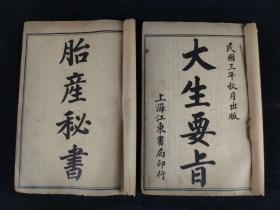 胎產秘書
民國三年秋月出版
大生要旨
上海江東書局印行